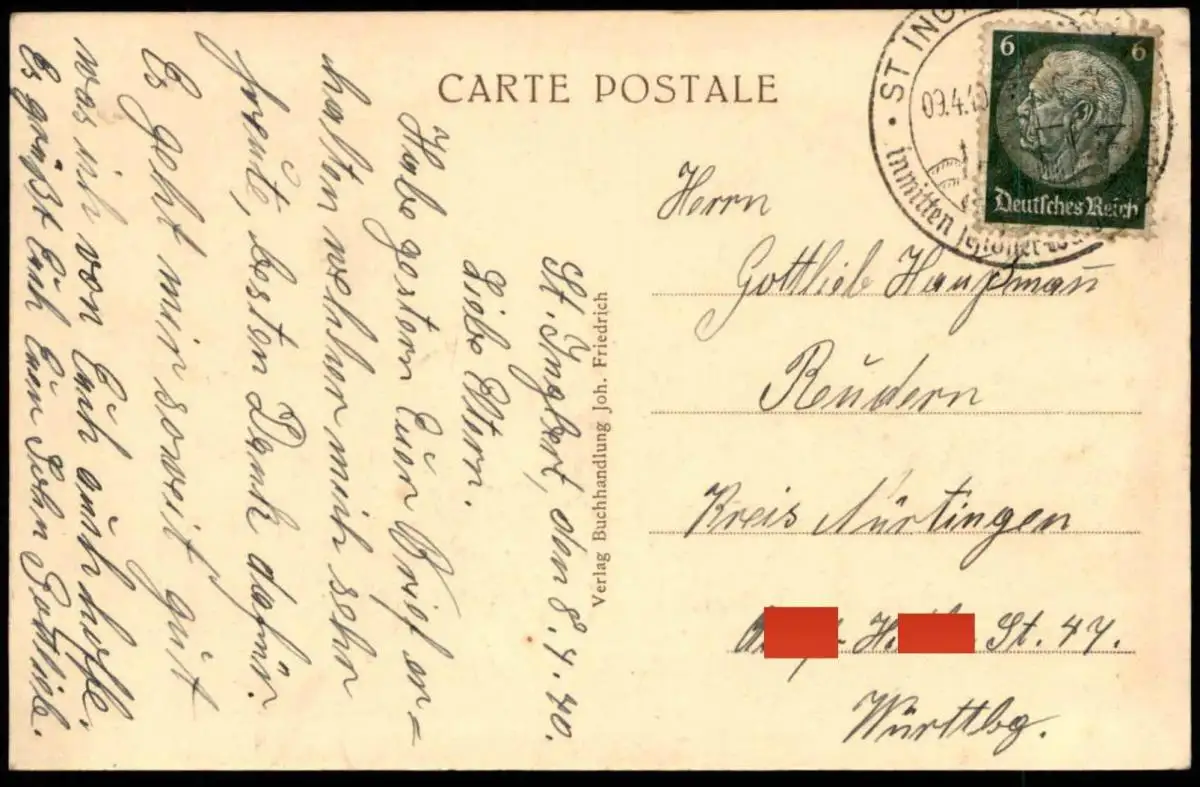 CARTE POSTALE
ST INGB
09.4.40
inmitten schöner
6 6
Deutsches Reich
Herrn
Gottlieb Haupmann
Reudern
Kreis Nürtingen
St. 47.
Württbg.
Verlag Buchhandlung Joh. Friedrich
St. Ingbert, den 8. 4. 40.
Liebe Eltern.
Habe gestern Euern Brief er=
halten welcher mich sehr
freute, besten Dank dafür.
Es geht mir soweit gut
was ich von Euch auch hoffe.
Es grüßt Euch Euer Sohn Gottlieb.